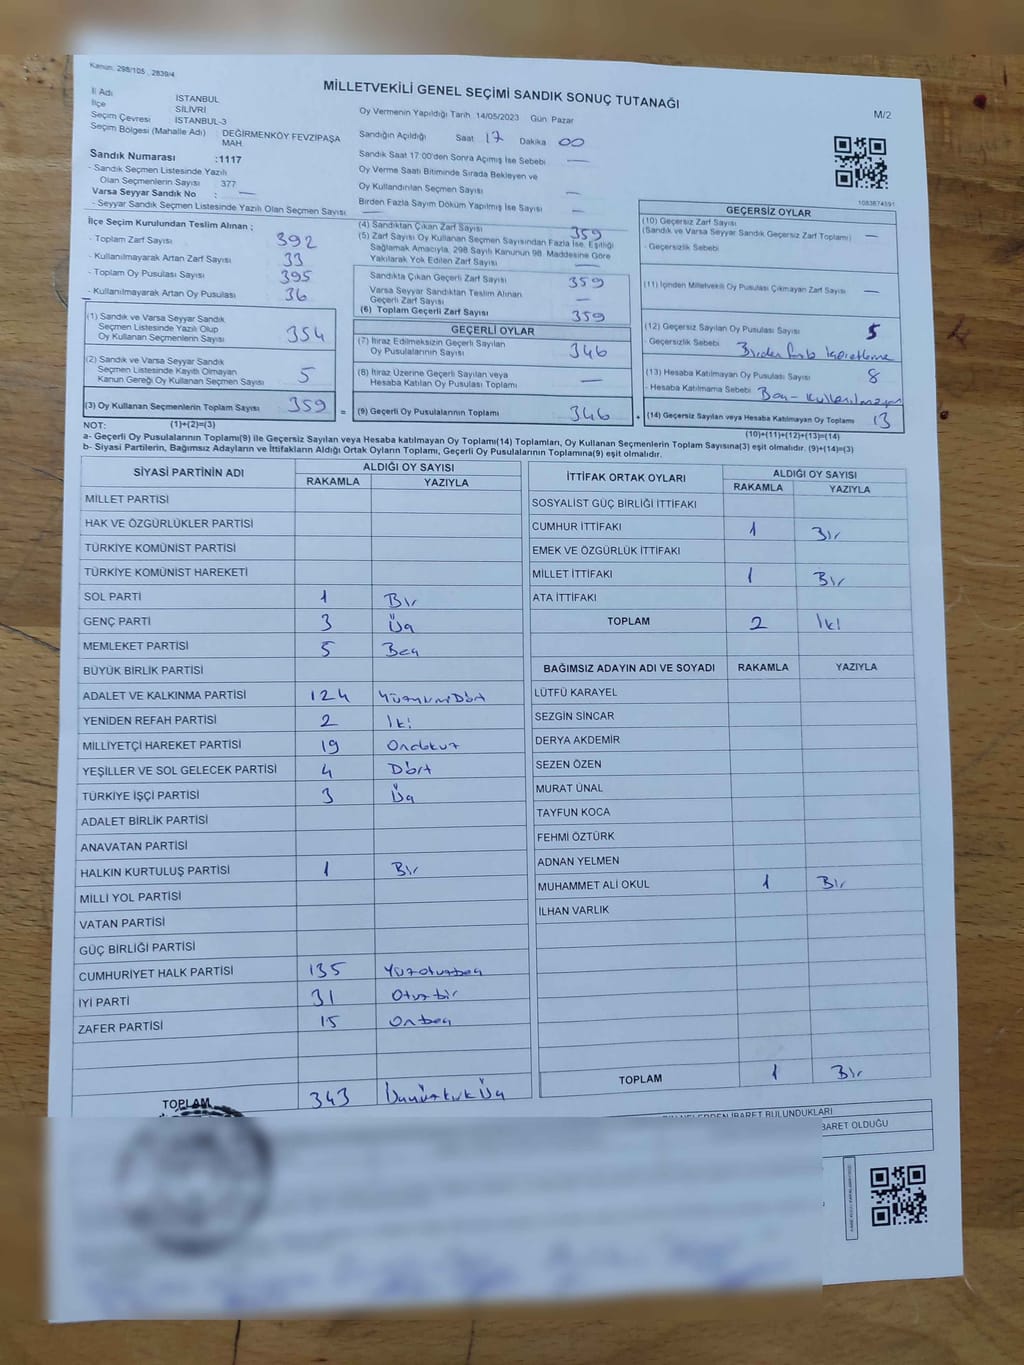 Kanun: 298/105 , 2839/4
MİLLETVEKİLİ GENEL SEÇİMİ SANDIK SONUÇ TUTANAĞI
M/2
İl Adı İSTANBUL
İlçe SİLİVRİ
Seçim Çevresi : İSTANBUL-3
Seçim Bölgesi (Mahalle Adı) : DEĞİRMENKÖY FEVZİPAŞA MAH.
Sandık Numarası :1117
- Sandık Seçmen Listesinde Yazılı
Olan Seçmenlerin Sayısı 377
Varsa Seyyar Sandık No : —
- Seyyar Sandık Seçmen Listesinde Yazılı Olan Seçmen Sayısı —
Oy Vermenin Yapıldığı Tarih 14/05/2023 Gün Pazar
Sandığın Açıldığı Saat 17 Dakika 00
Sandık Saat 17 00'den Sonra Açılmış İse Sebebi —
Oy Verme Saati Bitiminde Sırada Bekleyen ve
Oy Kullandırılan Seçmen Sayısı —
Birden Fazla Sayım Döküm Yapılmış İse Sayısı —
1083874591
İlçe Seçim Kurulundan Teslim Alınan ;
- Toplam Zarf Sayısı 392
- Kullanılmayarak Artan Zarf Sayısı 33
- Toplam Oy Pusulası Sayısı 395
- Kullanılmayarak Artan Oy Pusulası 36
(1) Sandık ve Varsa Seyyar Sandık
Seçmen Listesinde Yazılı Olup
Oy Kullanan Seçmenlerin Sayısı 354
(2) Sandık ve Varsa Seyyar Sandık
Seçmen Listesinde Kayıtlı Olmayan
Kanun Gereği Oy Kullanan Seçmen Sayısı 5
(3) Oy Kullanan Seçmenlerin Toplam Sayısı 359 =
(1)+(2)=(3)
(4) Sandıktan Çıkan Zarf Sayısı 359
(5) Zarf Sayısı Oy Kullanan Seçmen Sayısından Fazla İse, Eşitliği
Sağlamak Amacıyla, 298 Sayılı Kanunun 98. Maddesine Göre
Yakılarak Yok Edilen Zarf Sayısı —
Sandıkta Çıkan Geçerli Zarf Sayısı 359
Varsa Seyyar Sandıktan Teslim Alınan
Geçerli Zarf Sayısı —
(6) Toplam Geçerli Zarf Sayısı 359
GEÇERLİ OYLAR
(7) İtiraz Edilmeksizin Geçerli Sayılan
Oy Pusulalarının Sayısı 346
(8) İtiraz Üzerine Geçerli Sayılan veya
Hesaba Katılan Oy Pusulası Toplamı —
(9) Geçerli Oy Pusulalarının Toplamı 346 +
GEÇERSİZ OYLAR
(10) Geçersiz Zarf Sayısı
(Sandık ve Varsa Seyyar Sandık Geçersiz Zarf Toplamı) —
- Geçersizlik Sebebi
(11) İçinden Milletvekili Oy Pusulası Çıkmayan Zarf Sayısı —
(12) Geçersiz Sayılan Oy Pusulası Sayısı 5
- Geçersizlik Sebebi
(13) Hesaba Katılmayan Oy Pusulası Sayısı 8
- Hesaba Katılmama Sebebi Boş - Kullanılmayan
(14) Geçersiz Sayılan veya Hesaba Katılmayan Oy Toplamı 13
(10)+(11)+(12)+(13)=(14)
NOT:
a- Geçerli Oy Pusulalarının Toplamı(9) ile Geçersiz Sayılan veya Hesaba katılmayan Oy Toplamı(14) Toplamları, Oy Kullanan Seçmenlerin Toplam Sayısına(3) eşit olmalıdır. (9)+(14)=(3)
b- Siyasi Partilerin, Bağımsız Adayların ve İttifakların Aldığı Oyların Toplamı, Geçerli Oy Pusulalarının Toplamına(9) eşit olmalıdır.
SİYASİ PARTİNİN ADI ALDIĞI OY SAYISI
RAKAMLA YAZIYLA
MİLLET PARTİSİ
HAK VE ÖZGÜRLÜKLER PARTİSİ
TÜRKİYE KOMÜNİST PARTİSİ
TÜRKİYE KOMÜNİST HAREKETİ
SOL PARTİ 1 Bir
GENÇ PARTİ 3 Üç
MEMLEKET PARTİSİ 5 Beş
BÜYÜK BİRLİK PARTİSİ
ADALET VE KALKINMA PARTİSİ 124 YüzyirmiDört
YENİDEN REFAH PARTİSİ 2 İki
MİLLİYETÇİ HAREKET PARTİSİ 19 Ondokuz
YEŞİLLER VE SOL GELECEK PARTİSİ 4 Dört
TÜRKİYE İŞÇİ PARTİSİ 3 Üç
ADALET BİRLİK PARTİSİ
ANAVATAN PARTİSİ
HALKIN KURTULUŞ PARTİSİ 1 Bir
MİLLİ YOL PARTİSİ
VATAN PARTİSİ
GÜÇ BİRLİĞİ PARTİSİ
CUMHURİYET HALK PARTİSİ 135 Yüzotuzbeş
İYİ PARTİ 31 Otuzbir
ZAFER PARTİSİ 15 Onbeş
TOPLAM 343 ÜçyüzkırkÜç
İTTİFAK ORTAK OYLARI ALDIĞI OY SAYISI
RAKAMLA YAZIYLA
SOSYALİST GÜÇ BİRLİĞİ İTTİFAKI
CUMHUR İTTİFAKI 1 Bir
EMEK VE ÖZGÜRLÜK İTTİFAKI
MİLLET İTTİFAKI 1 Bir
ATA İTTİFAKI
TOPLAM 2 İki
BAĞIMSIZ ADAYIN ADI VE SOYADI RAKAMLA YAZIYLA
LÜTFÜ KARAYEL
SEZGİN SİNCAR
DERYA AKDEMİR
SEZEN ÖZEN
MURAT ÜNAL
TAYFUN KOCA
FEHMİ ÖZTÜRK
ADNAN YELMEN
MUHAMMET ALİ OKUL 1 Bir
İLHAN VARLIK
TOPLAM 1 Bir
İBARET BULUNDUKLARI
BARET OLDUĞU